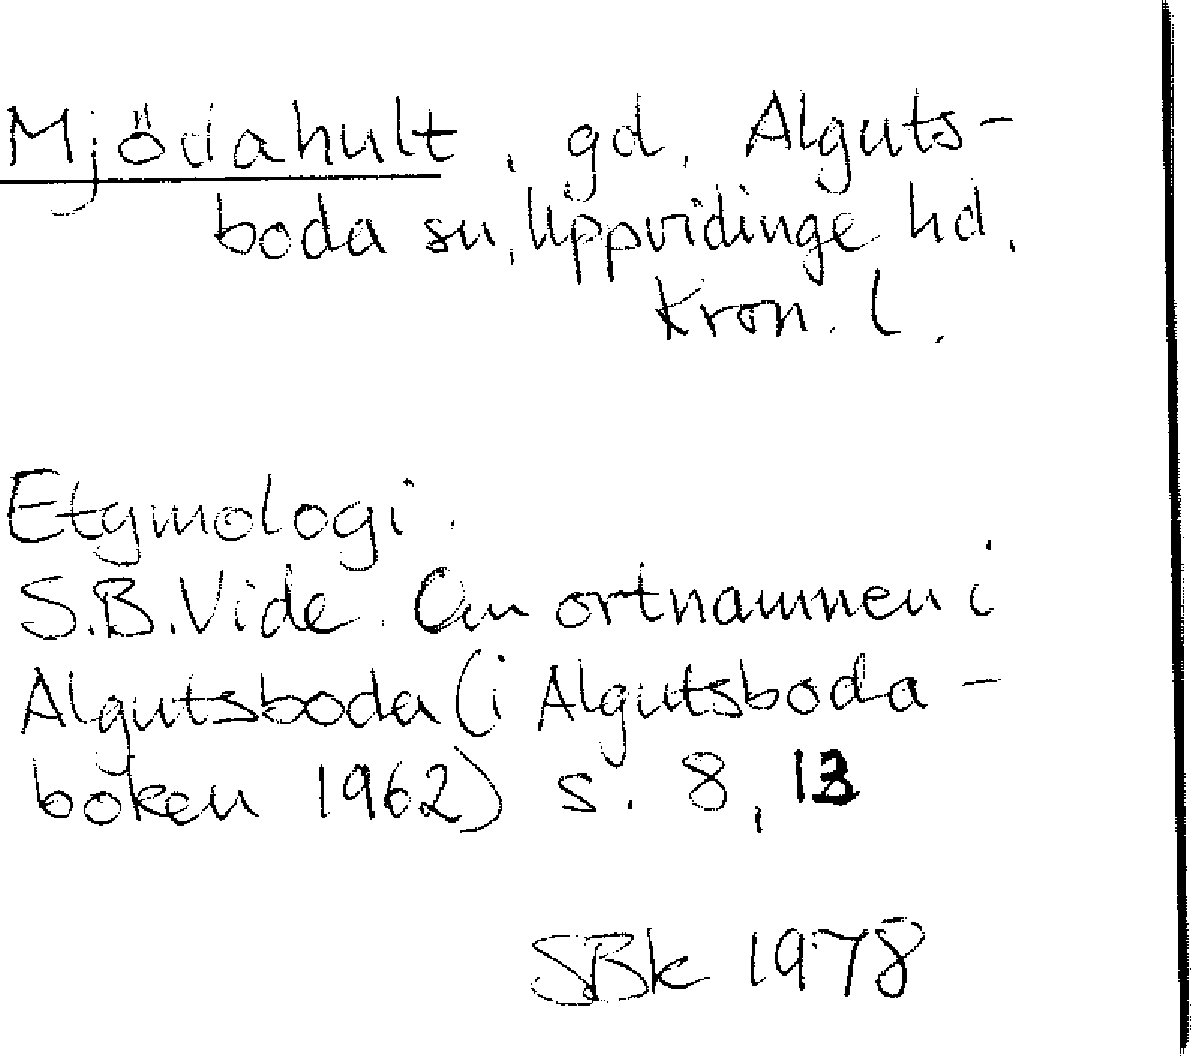 Mjödahult, gd, Alguts-
boda sn, Uppvidinge hd,
Kron. l.
Etymologi.
S.B.Vide. Om ortnamnen i
Algutsboda (i Algutsboda-
boken 1962) s. 8, 13
SBk 1978